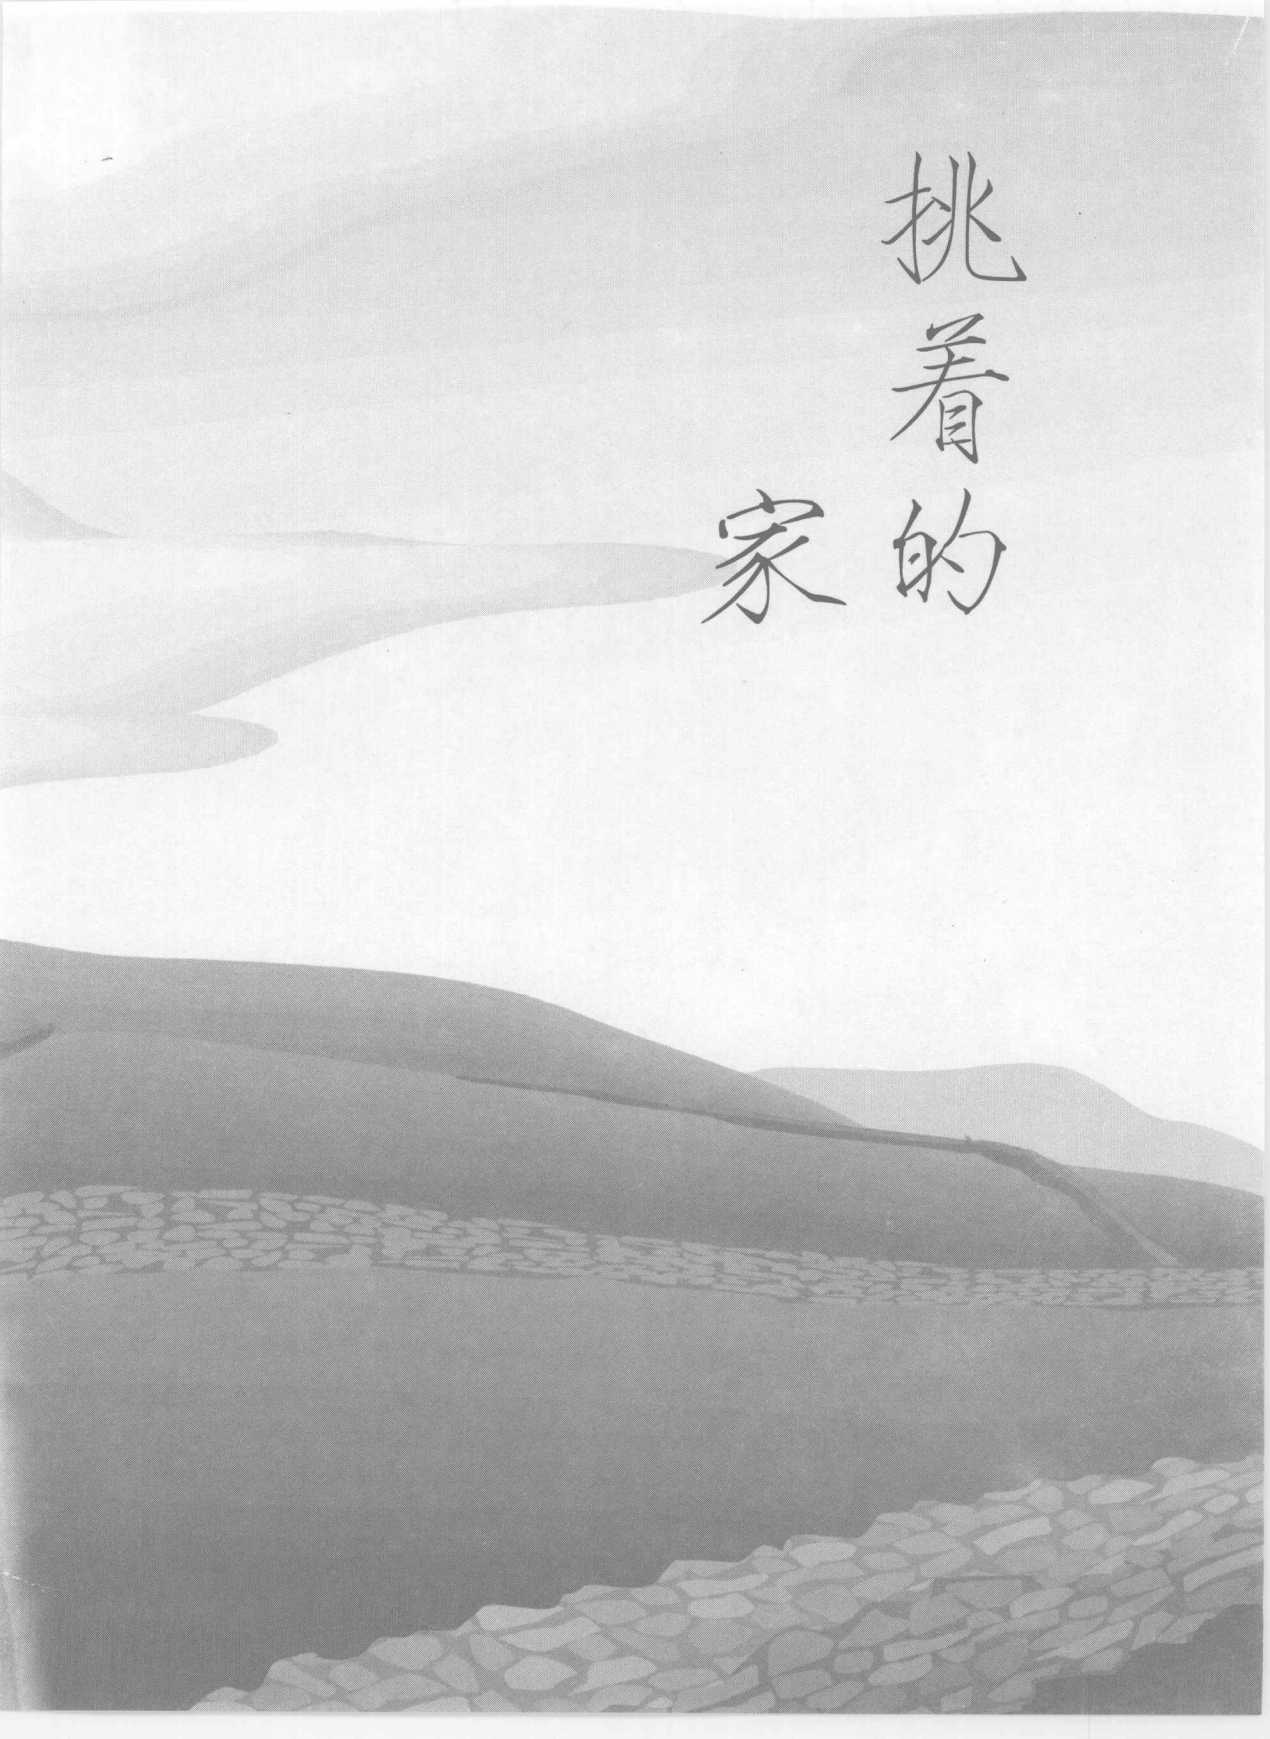 挑着的
家